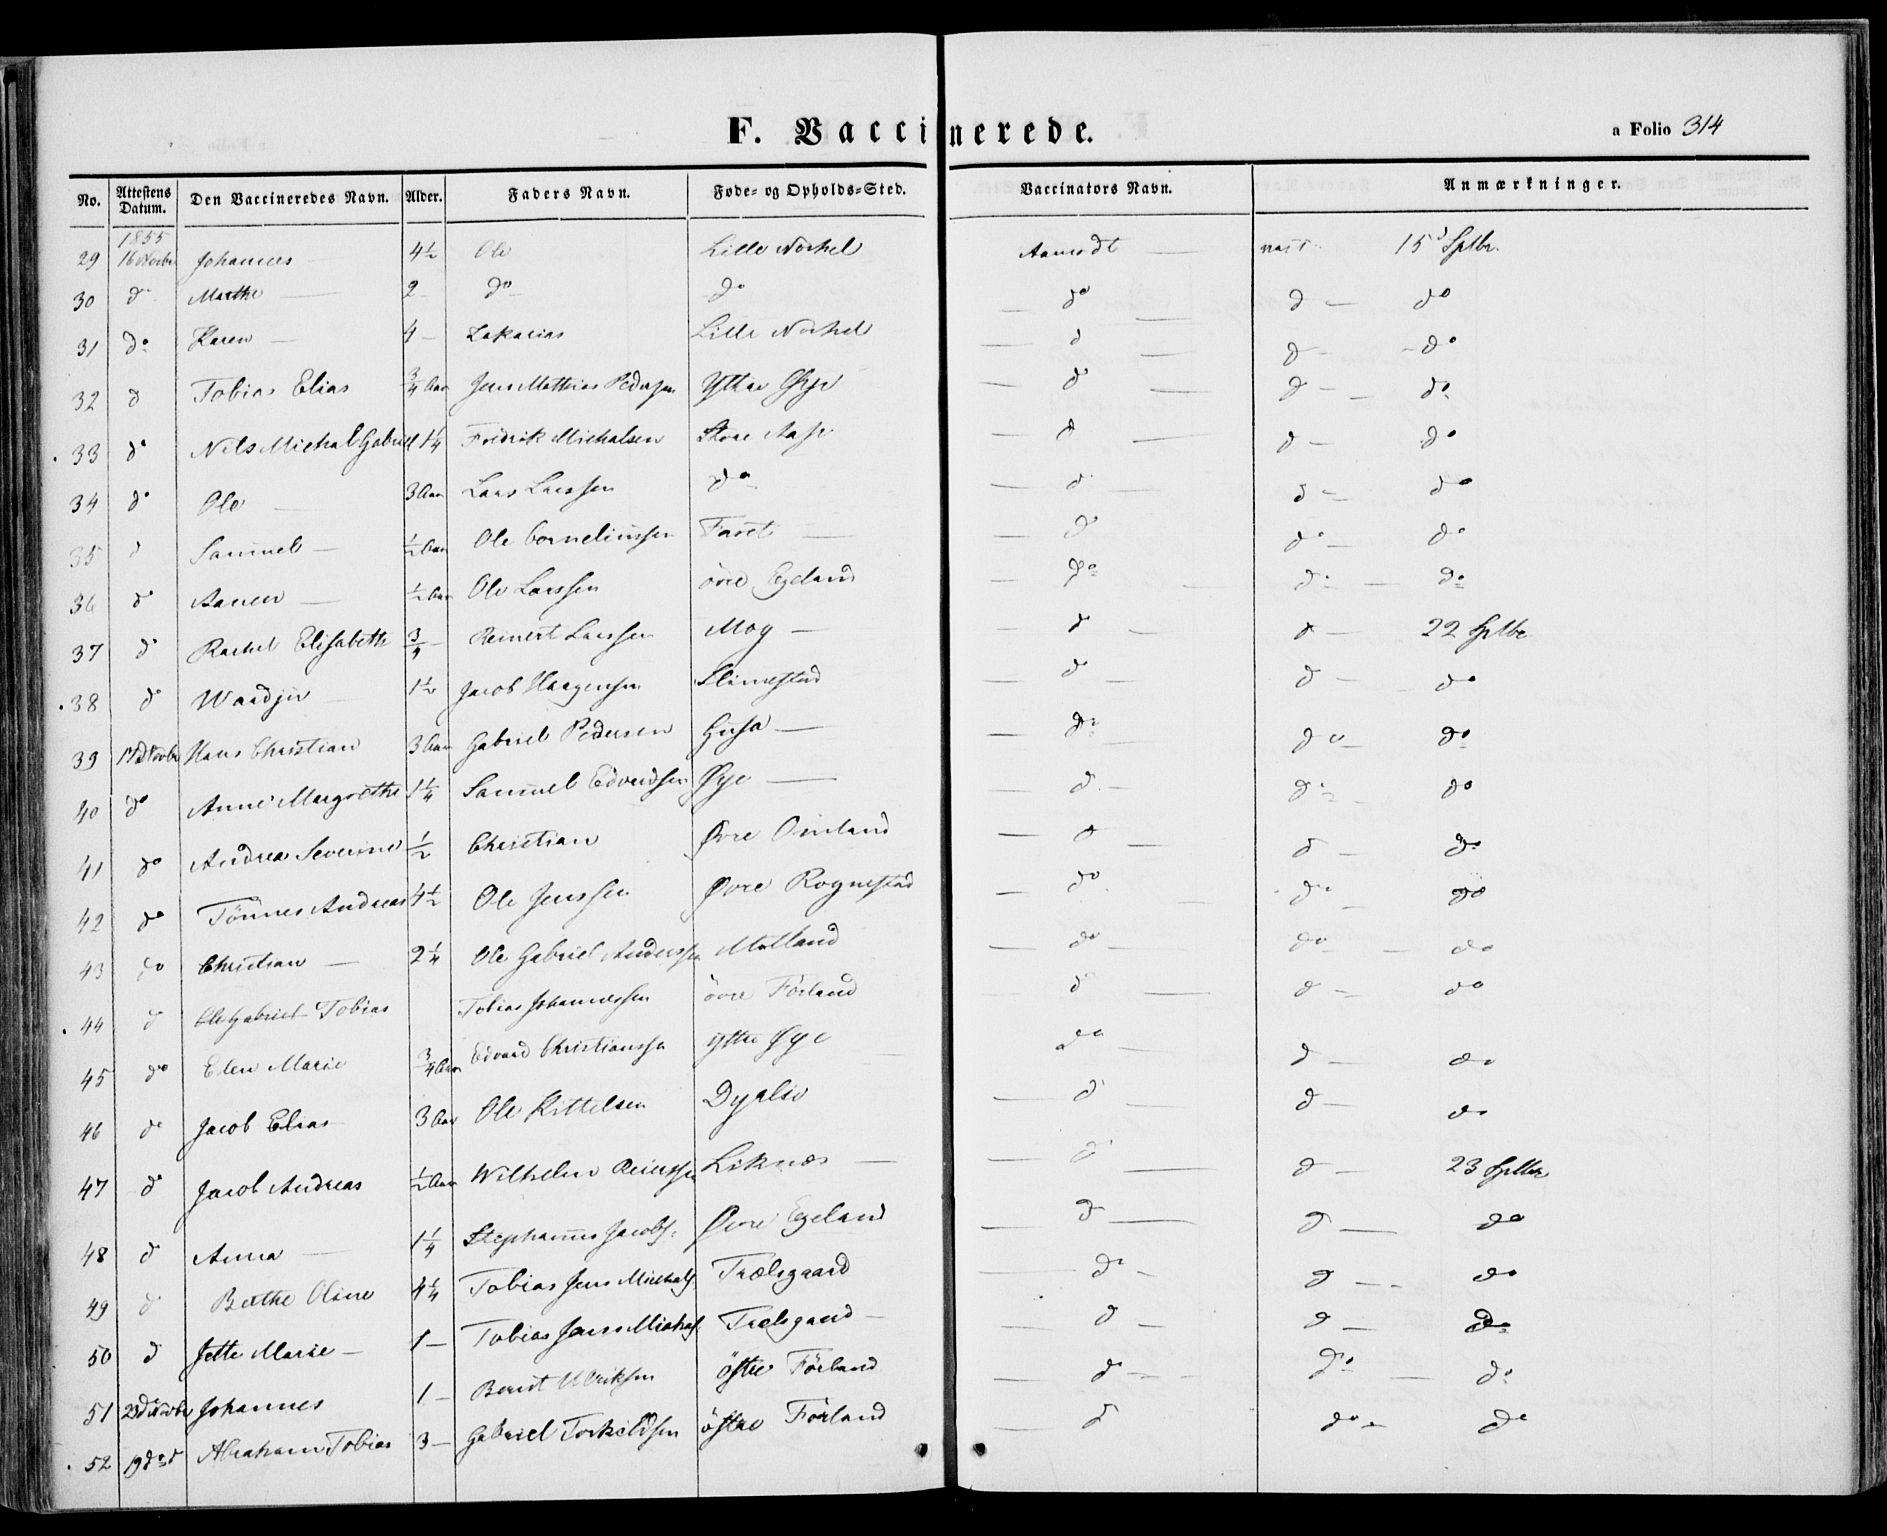 F. Vaccinerede.
a Folio 314
No. Attestens Datum. Den Vaccineredes Navn. Alder. Faders Navn. Føde- og Opholds-Sted. Vaccinators Navn. Anmærkninger.
1855
29 16 Novbr Johannes 4½ Ole Lille Aamodt — vact. 15d Sptbr.
30 do Marthe — 2 — do — do — do — d — do
31 do Karen — 4 — Zakarias Lille — d — d — do
32 d Tobias Elias ¾ Aar Jens Mathias Pedersen Yttre Øye — do — d — do
33 do Nils Michal Gabriel 1¼ Fredrik Michalsen Store — d — d — do
34 do Ole — 3 Aar Lars Larssen do — d — d — do
35 d Samuel — ½ Aar Ole Corneliussen Faret — — do — do — do
36 do Aanen — ½ Aar Ole Larssen övre Egeland — do — do — do
37 d Rachel Elisabeth ¾ — Reinert Larssen Moy — — d — d — 22 Sptbr
38 do — 1½ Jacob Haagensen Slimestad — d — d — do
39 17d Novbr Hans Christian 3 Aar Gabriel Pedersen Husa — — do — do — do
40 do Anne Margrethe 1¼ Samuel Edvardsen Øye — — d. — do — do
41 do Andrea Severine ½ Christian Øvre Omland — d — d — do
42 do Tönnes Andreas 4½ Ole Jenssen Øvre Rognestad — do — do — do
43 do Christian — 2¼ Ole Gabriel Anderssen — do — do — do
44 d Ole Gabriel Tobias Tobias Johannessen övre Förland — d — d — do
45 do Elen Marie ¾ Aar Edvard Christianssen yttre Øye do — d — do
46 do Jacob Elias 3 Aar Ole Kittelsen Dyrlid — d — d — do
47 do Jacob Andreas ½ Aar Wilhelm Reierssen Liknæs — — d — d — 23 Sptbr
48 d Anna — 1¼ Stephanus Jacobs. Øvre Egeland — d — d — do
49 d Berthe Oline 4¼ Tobias Jens Michals. Trælsgaard — do — d — do
50 d Jette Marie — 1 — Tobias Jens Michals. Trælsgaard — — d — d — do
51 23d Novbr Johannes 1 — Berent Ulriksen östre Förland — do — do — do
52 19 do Abraham Tobias 3 — Gabriel Torkildsen östre Förland — d do — do